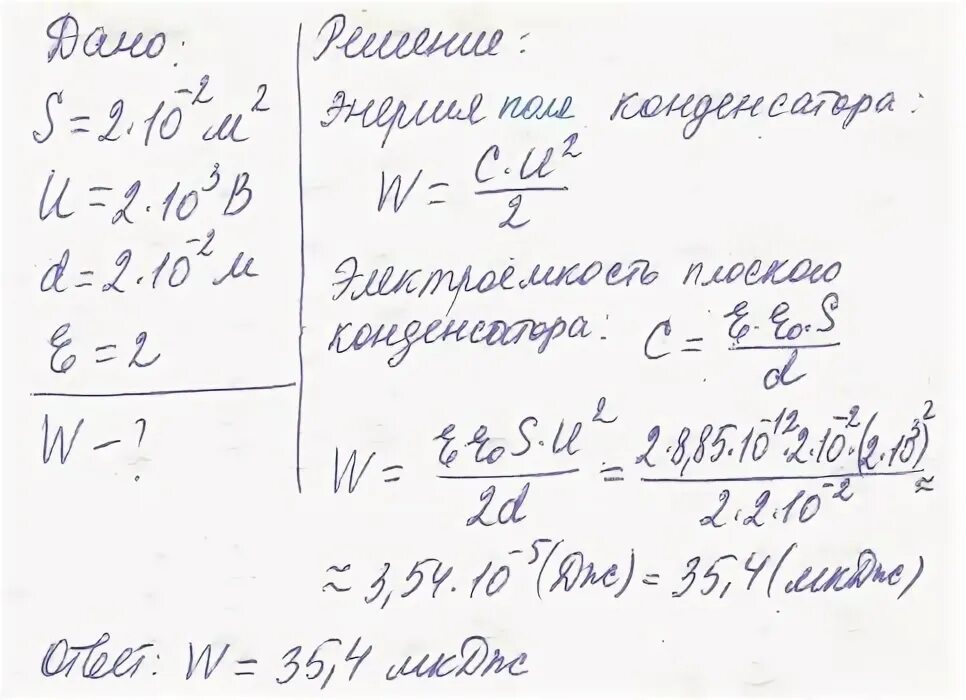 Дано:
S = 2·10⁻² м²
U = 2·10³ В
d = 2·10⁻² м
ε = 2
W – ?
Решение:
Энергия поля конденсатора:
W = C·U²/2
Электроёмкость плоского
конденсатора: C = ε·ε₀·S/d
W = εε₀S·U²/2d = 2·8,85·10⁻¹²·2·10⁻²·(2·10³)²/2·2·10⁻² ≈
≈ 3,54·10⁻⁵ (Дж) = 35,4 (мкДж)
Ответ: W = 35,4 мкДж